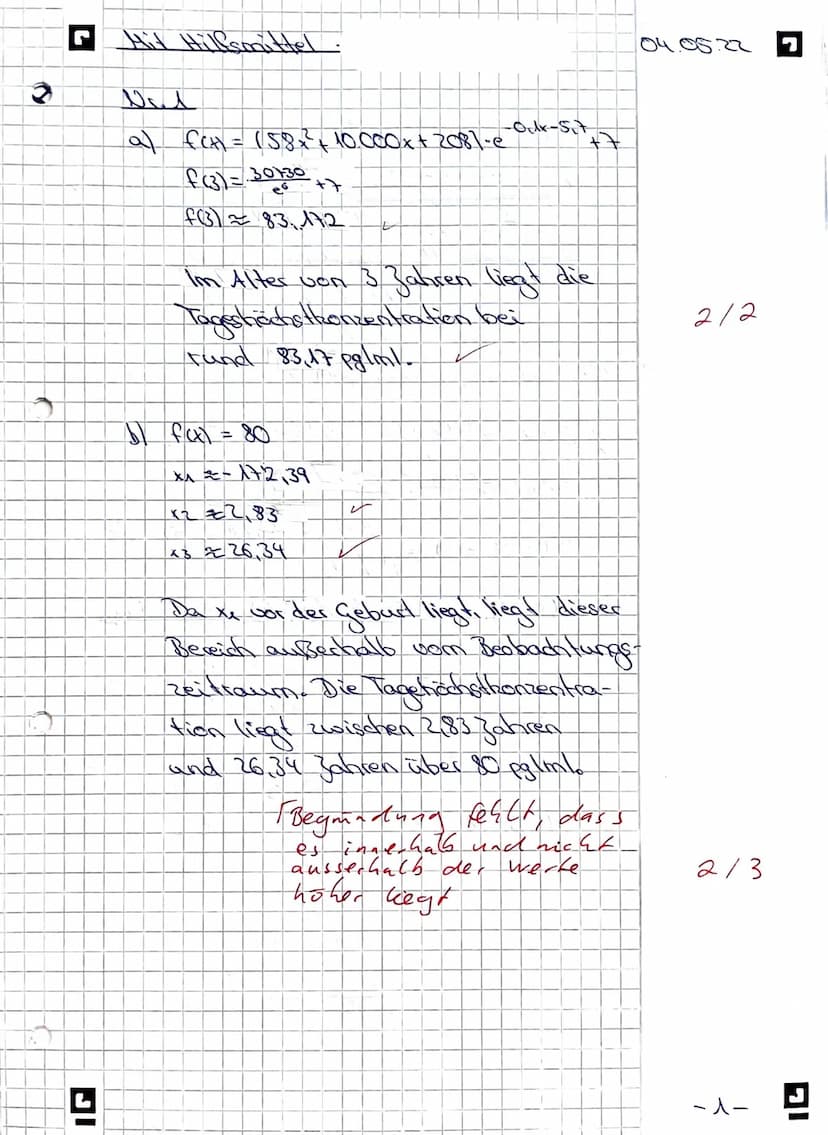 Mit Hilfsmittel. 04.05.22
Nr. 1
a) f(x) = (58x² + 10.000x + 208) · e^-0,1x-5,7 + 7
f(3) = 30730/e⁶ + 7
f(3) ≈ 83,172 ✓
Im Alter von 3 Jahren liegt die
Tageshöchstkonzentration bei 2/2
rund 83,17 pg/ml. ✓
b) f(x) = 80
x1 ≈ -172,39
x2 ≈ 2,83 ✓
x3 ≈ 26,34 ✓
Da x1 vor der Geburt liegt, liegt dieser
Bereich außerhalb vom Beobachtungs-
zeitraum. Die Tagehöchstkonzentra-
tion liegt zwischen 2,83 Jahren
und 26,34 Jahren über 80 pg/ml.
Γ Begründung fehlt, dass
es innerhalb und nicht
ausserhalb der Werte 2/3
höher liegt
-1-